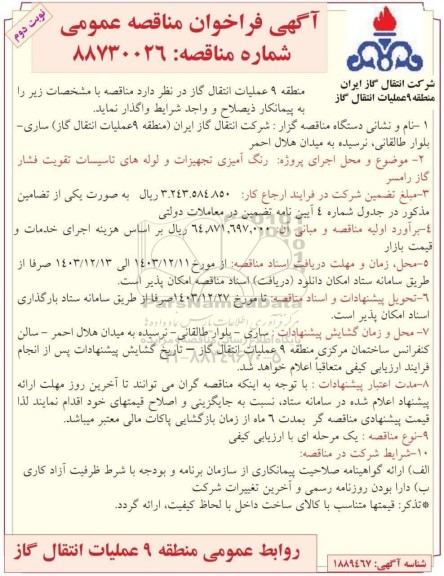 نوبت دوم
آگهی فراخوان مناقصه عمومی
شماره مناقصه: ۸۸۷۳۰۰۲۶
شرکت انتقال گاز ایران
منطقه ۹عملیات انتقال گاز
منطقه ۹ عملیات انتقال گاز در نظر دارد مناقصه با مشخصات زیر را
به پیمانکار ذیصلاح و واجد شرایط واگذار نماید.
۱ -نام و نشانی دستگاه مناقصه گزار : شرکت انتقال گاز ایران (منطقه ۹عملیات انتقال گاز) ساری-
بلوار طالقانی، نرسیده به میدان هلال احمر
۲- موضوع و محل اجرای پروژه: رنگ آمیزی تجهیزات و لوله های تاسیسات تقویت فشار
گاز رامسر
۳-مبلغ تضمین شرکت در فرایند ارجاع کار: ۳.۲۴۳.۵۸۴.۸۵۰ ریال به صورت یکی از تضامین
مذکور در جدول شماره ۴ آیین نامه تضمین در معاملات دولتی
۴-برآورد اولیه مناقصه و مبانی آن: ۶۴,۸۷۱,۶۹۷,۰۰۰ ریال بر اساس هزینه اجرای خدمات و
قیمت بازار
۵-محل، زمان و مهلت دریافت اسناد مناقصه: از مورخ ۱۴۰۳/۱۲/۱۱ الی ۱۴۰۳/۱۲/۱۳ صرفا از
طریق سامانه ستاد امکان دانلود (دریافت) اسناد مناقصه امکان پذیر است.
۶-تحویل پیشنهادات و اسناد مناقصه: تا مورخ ۱۴۰۳/۱۲/۲۷صرفا از طریق سامانه ستاد بارگذاری
اسناد امکان پذیر است.
۷- محل و زمان گشایش پیشنهادات : ساری - بلوار طالقانی- نرسیده به میدان هلال احمر - سالن
کنفرانس ساختمان مرکزی منطقه ۹ عملیات انتقال گاز – تاریخ گشایش پیشنهادات پس از انجام
فرایند ارزیابی کیفی متعاقباً اعلام خواهد شد.
۸-مدت اعتبار پیشنهادات : با توجه به اینکه مناقصه گران می توانند تا آخرین روز مهلت ارائه
پیشنهاد اعلام شده در سامانه ستاد، نسبت به جایگزینی و اصلاح قیمتهای خود اقدام نمایند لذا
قیمت پیشنهادی مناقصه گر بمدت ۶ ماه از زمان بازگشایی پاکات مالی معتبر میباشد.
۹-نوع مناقصه : یک مرحله ای با ارزیابی کیفی
۱۰-شرایط شرکت در مناقصه:
الف) ارائه گواهینامه صلاحیت پیمانکاری از سازمان برنامه و بودجه با شرط ظرفیت آزاد کاری
ب) دارا بودن روزنامه رسمی و آخرین تغییرات شرکت
*تذکر: قیمتها متناسب با کالای ساخت داخل با لحاظ کیفیت، ارائه گردد.
روابط عمومی منطقه ۹ عملیات انتقال گاز
شناسه آگهی: ۱۸۸۹۴۶۷